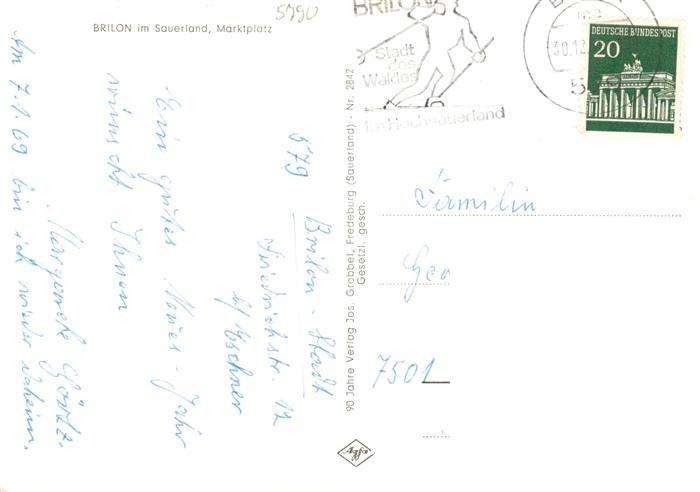 5990
BRILON im Sauerland, Marktplatz
579 Brilon-Stadt
Friedrichstr. 12
b/ Aschner
Ein gutes Neues-Jahr
wünscht Ihnen
Margarete Goertz.
Am 7.1.69 bin ich wieder daheim.
90 Jahre Verlag Jos. Grobbel, Fredeburg (Sauerland) - Nr. 2842
Gesetzl. gesch.
Agfa
BRILON
Stadt
des
Waldes
im Hochsauerland
30.12
DEUTSCHE BUNDESPOST
20
Familie
Geo
7501